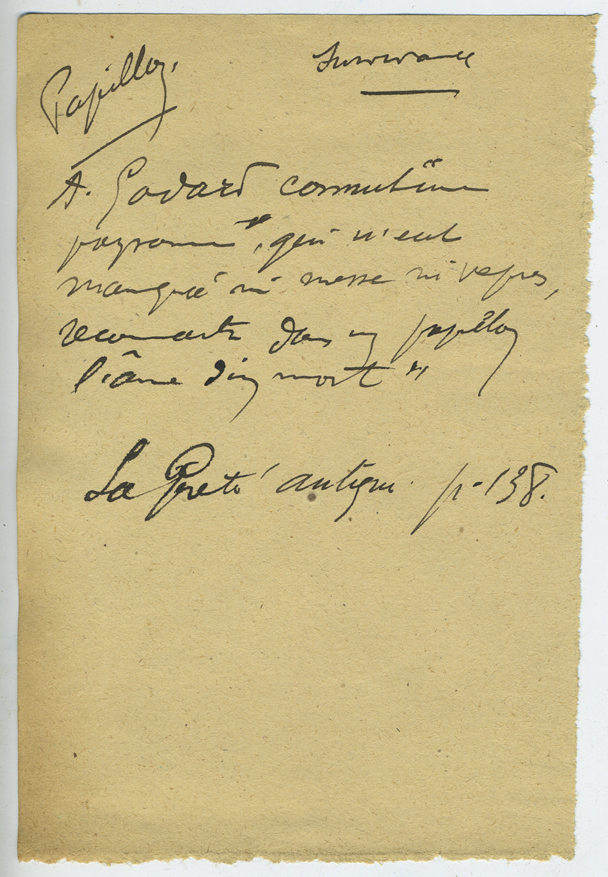 Papillon.
Survivance
A. Godard connut une
paysanne ", qui n'eut
manqué ni messe ni vepres,
reconnaitre dans un papillon
l'âme d'un mort "
La Piété antique p. 138.